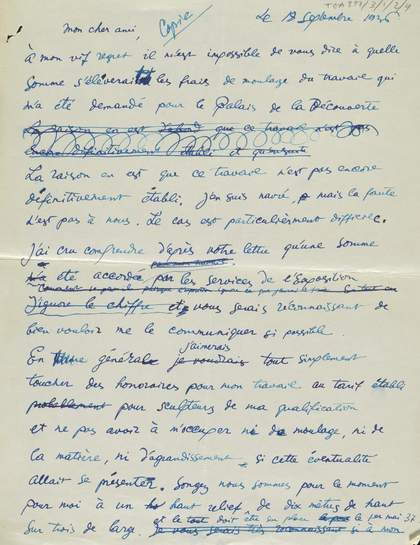 TOA 997/3/1/2/4
Le 18 Septembre 1936
Copie
Mon cher ami,
à mon vif regret il m'est impossible de vous dire à quelle
somme s'élèverait les frais de moulage du travail qui
m'a été demandé pour le Palais de la Découverte
La raison en est d'abord que ce travail n'est pas
encore définitivement établi et
La raison en est que ce travail n'est pas encore
définitivement établi. J'en suis navré, mais la faute
n'est pas à nous. Le cas est particulièrement difficile.
J'ai cru comprendre d'après votre lettre qu'une somme
a été accordée par les services de l'Exposition
J'ignore le chiffre et je vous serais reconnaissant de
bien vouloir me le communiquer si possible.
j'aimerais
En général je voudrais tout simplement
toucher des honoraires pour mon travail au tarif établi
probablement pour sculpteurs de ma qualification
et ne pas avoir à m'occuper ni de moulage, ni de
la matière, ni d'agrandissement, si cette éventualité
allait se présenter. Songez nous sommes pour le moment
pour moi à un haut relief de dix mètres de haut
et le tout doit être en place le 1er mai 37
sur trois de large. je vous serais très reconnaissant si à mon